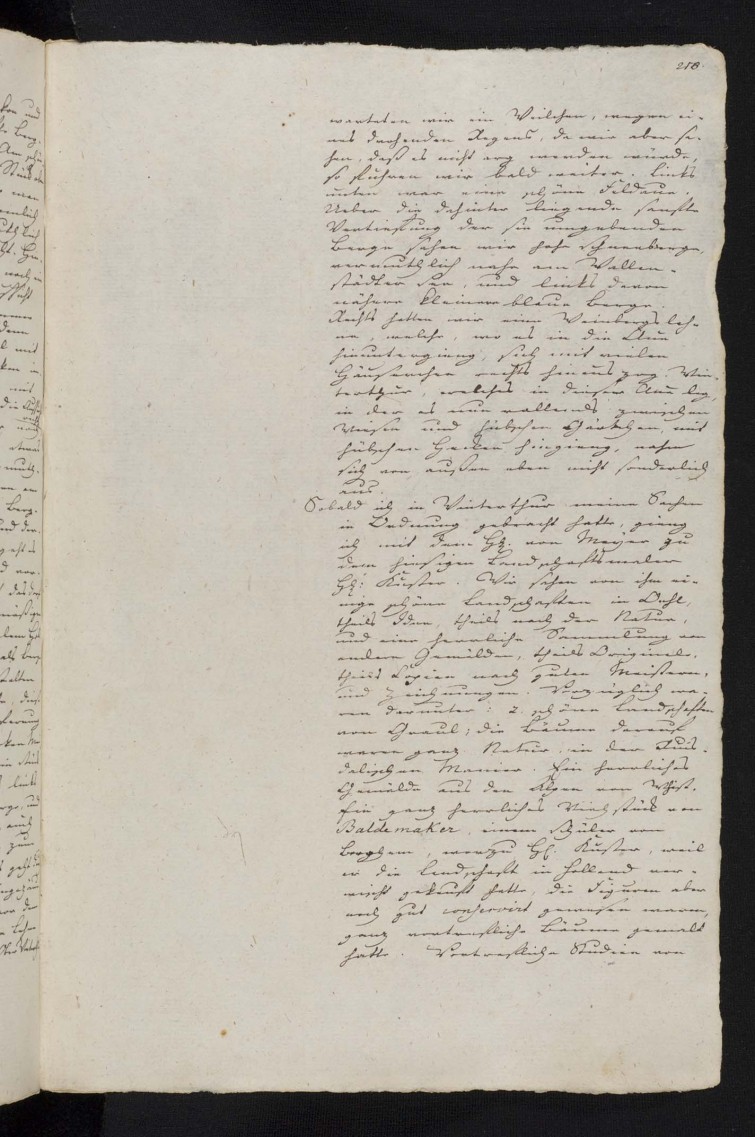 218.
warteten wir ein Weilchen, wegen ei-
nes drohenden Regens, da wir aber sa-
hen, daß es nicht arg werden würde,
so fuhren wir bald weiter. Links
unten war eine schöne Feldaue.
Ueber die dahinter liegende sanfte
Vertiefung der sie umgebenden
Berge sahen wir hohe Schneeberge,
vermuthlich nahe am Wallen-
städter See, und links davon
nähere kleinere blaue Berge.
Rechts hatten wir eine Weinbergsleh-
ne, welche, wo es in die Aue
hinunterging, sich mit vielen
Häuserchen rechts hinauszog. Win-
terthur, welches in dieser Aue lag,
in der es nun vollends zwischen
Wiesen und hübschen Gärtchen mit
hübschen Hecken hinging, nahm
sich von außen eben nicht sonderlich
aus.
Sobald ich in Winterthur meine Sachen
in Ordnung gebracht hatte, ging
ich mit dem H. von Meyer zu
dem hiesigen Landschaftsmaler
H. Kuster. Wir sahen von ihm ei-
nige schöne Landschaften in Oehl,
theils Ideen, theils nach der Natur,
und eine herrliche Sammlung von
andern Gemälden, theils Originale,
theils Copien nach guten Meistern,
und Zeichnungen. Vorzüglich wa-
ren darunter: 2. schöne Landschaften
von Graul; die Bäume darauf
waren ganz Natur, in der Ruis-
dalischen Manier. Ein herrliches
Gemälde aus den Alpen von Wüst.
Ein ganz herrliches Viehstück von
Baldemaker, einem Schüler von
Berghem, worzu H. Kuster, weil
er die Landschaft in Holland ver-
wischt gekauft hatte, die Figuren aber
noch gut conservirt gewesen waren,
ganz vortreffliche Bäume gemalt
hatte. Vortreffliche Studien von